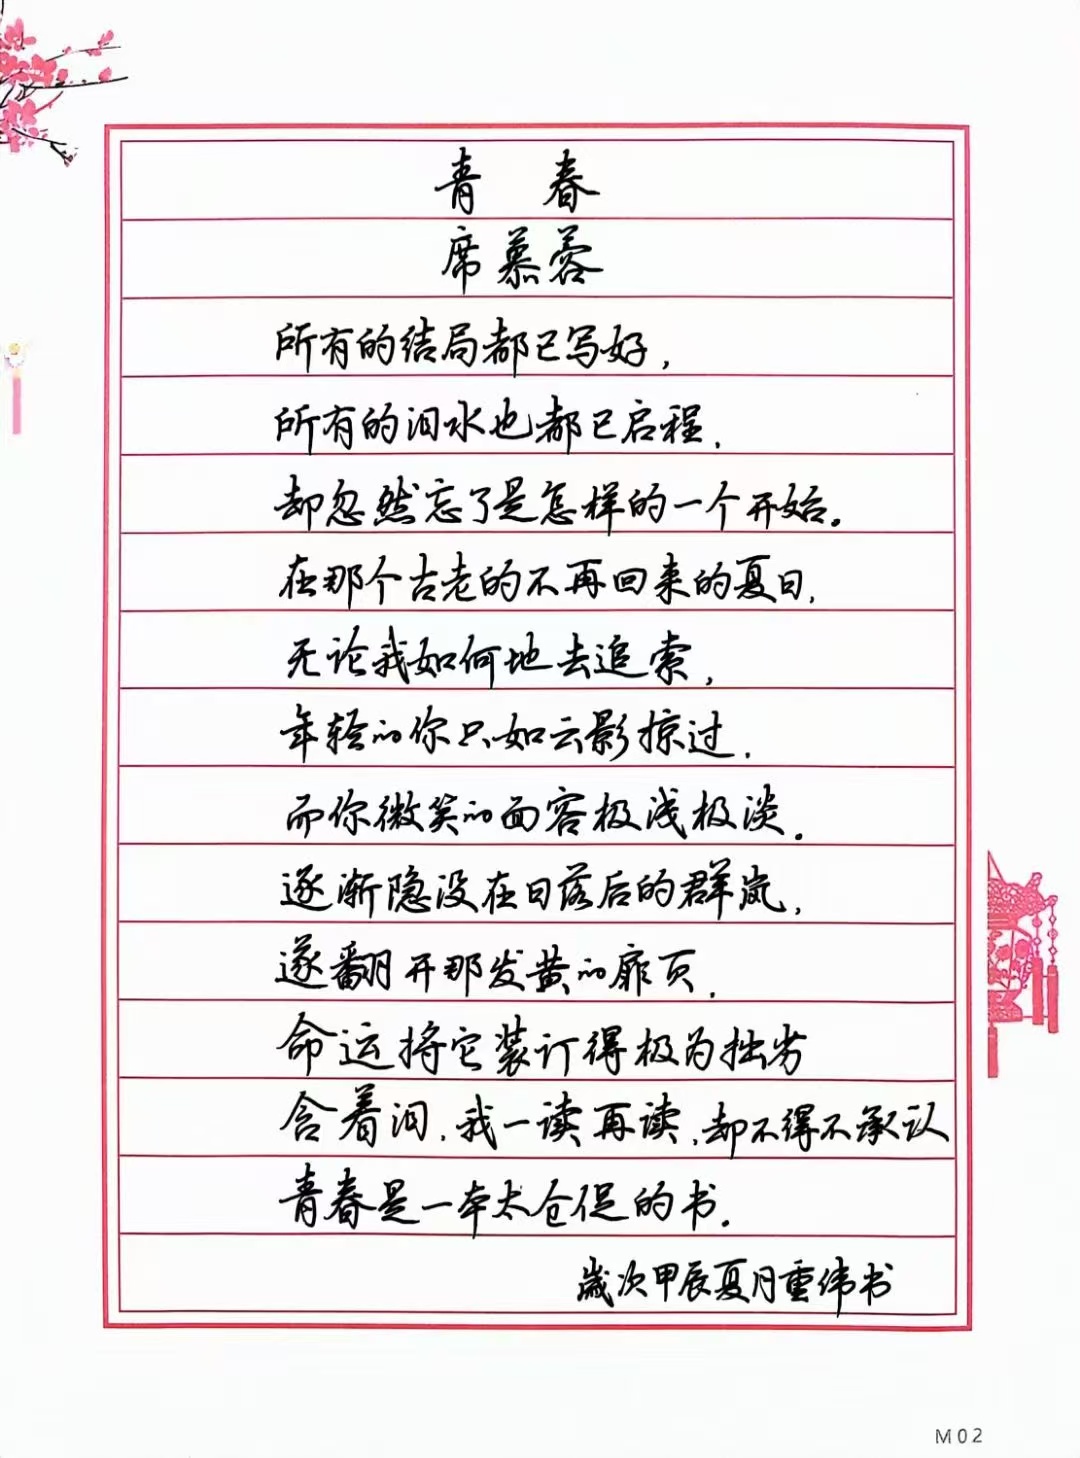 青 春
席慕蓉
所有的结局都已写好，
所有的泪水也都已启程，
却忽然忘了是怎样的一个开始。
在那个古老的不再回来的夏日，
无论我如何地去追索，
年轻的你只如云影掠过，
而你微笑的面容极浅极淡。
逐渐隐没在日落后的群岚，
遂翻开那发黄的扉页，
命运将它装订得极为拙劣
含着泪，我一读再读，却不得不承认
青春是一本太仓促的书。
岁次甲辰夏月重纬书
M02